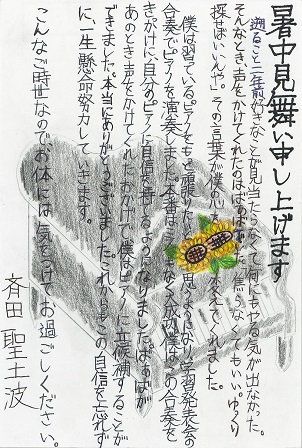 暑中見舞い申し上げます
遡ること一年前好きなことが見当たらなくて何にもヤる気が出なかった。
そんなとき、声をかけてくれたのはばあばでした。「焦らなくてもいい。ゆっくり
探せばいいんや」その言葉が僕の心を
僕は習っているピアノをもっと頑張りたいと思うようになり、学習発表会の
合奏でピアノを演奏しました。本番は
きっかけに自分のピアノに自信を持てるようになりました。ばあばが
あのとき声をかけてくれたおかげで、僕はピアノに立候補することが
できました。本当にありがとうございました。これからもこの自信を忘れず
に、一生懸命努力していきます。
こんなご時世なのでお体には気をつけてお過ごしください。
斉田聖土波